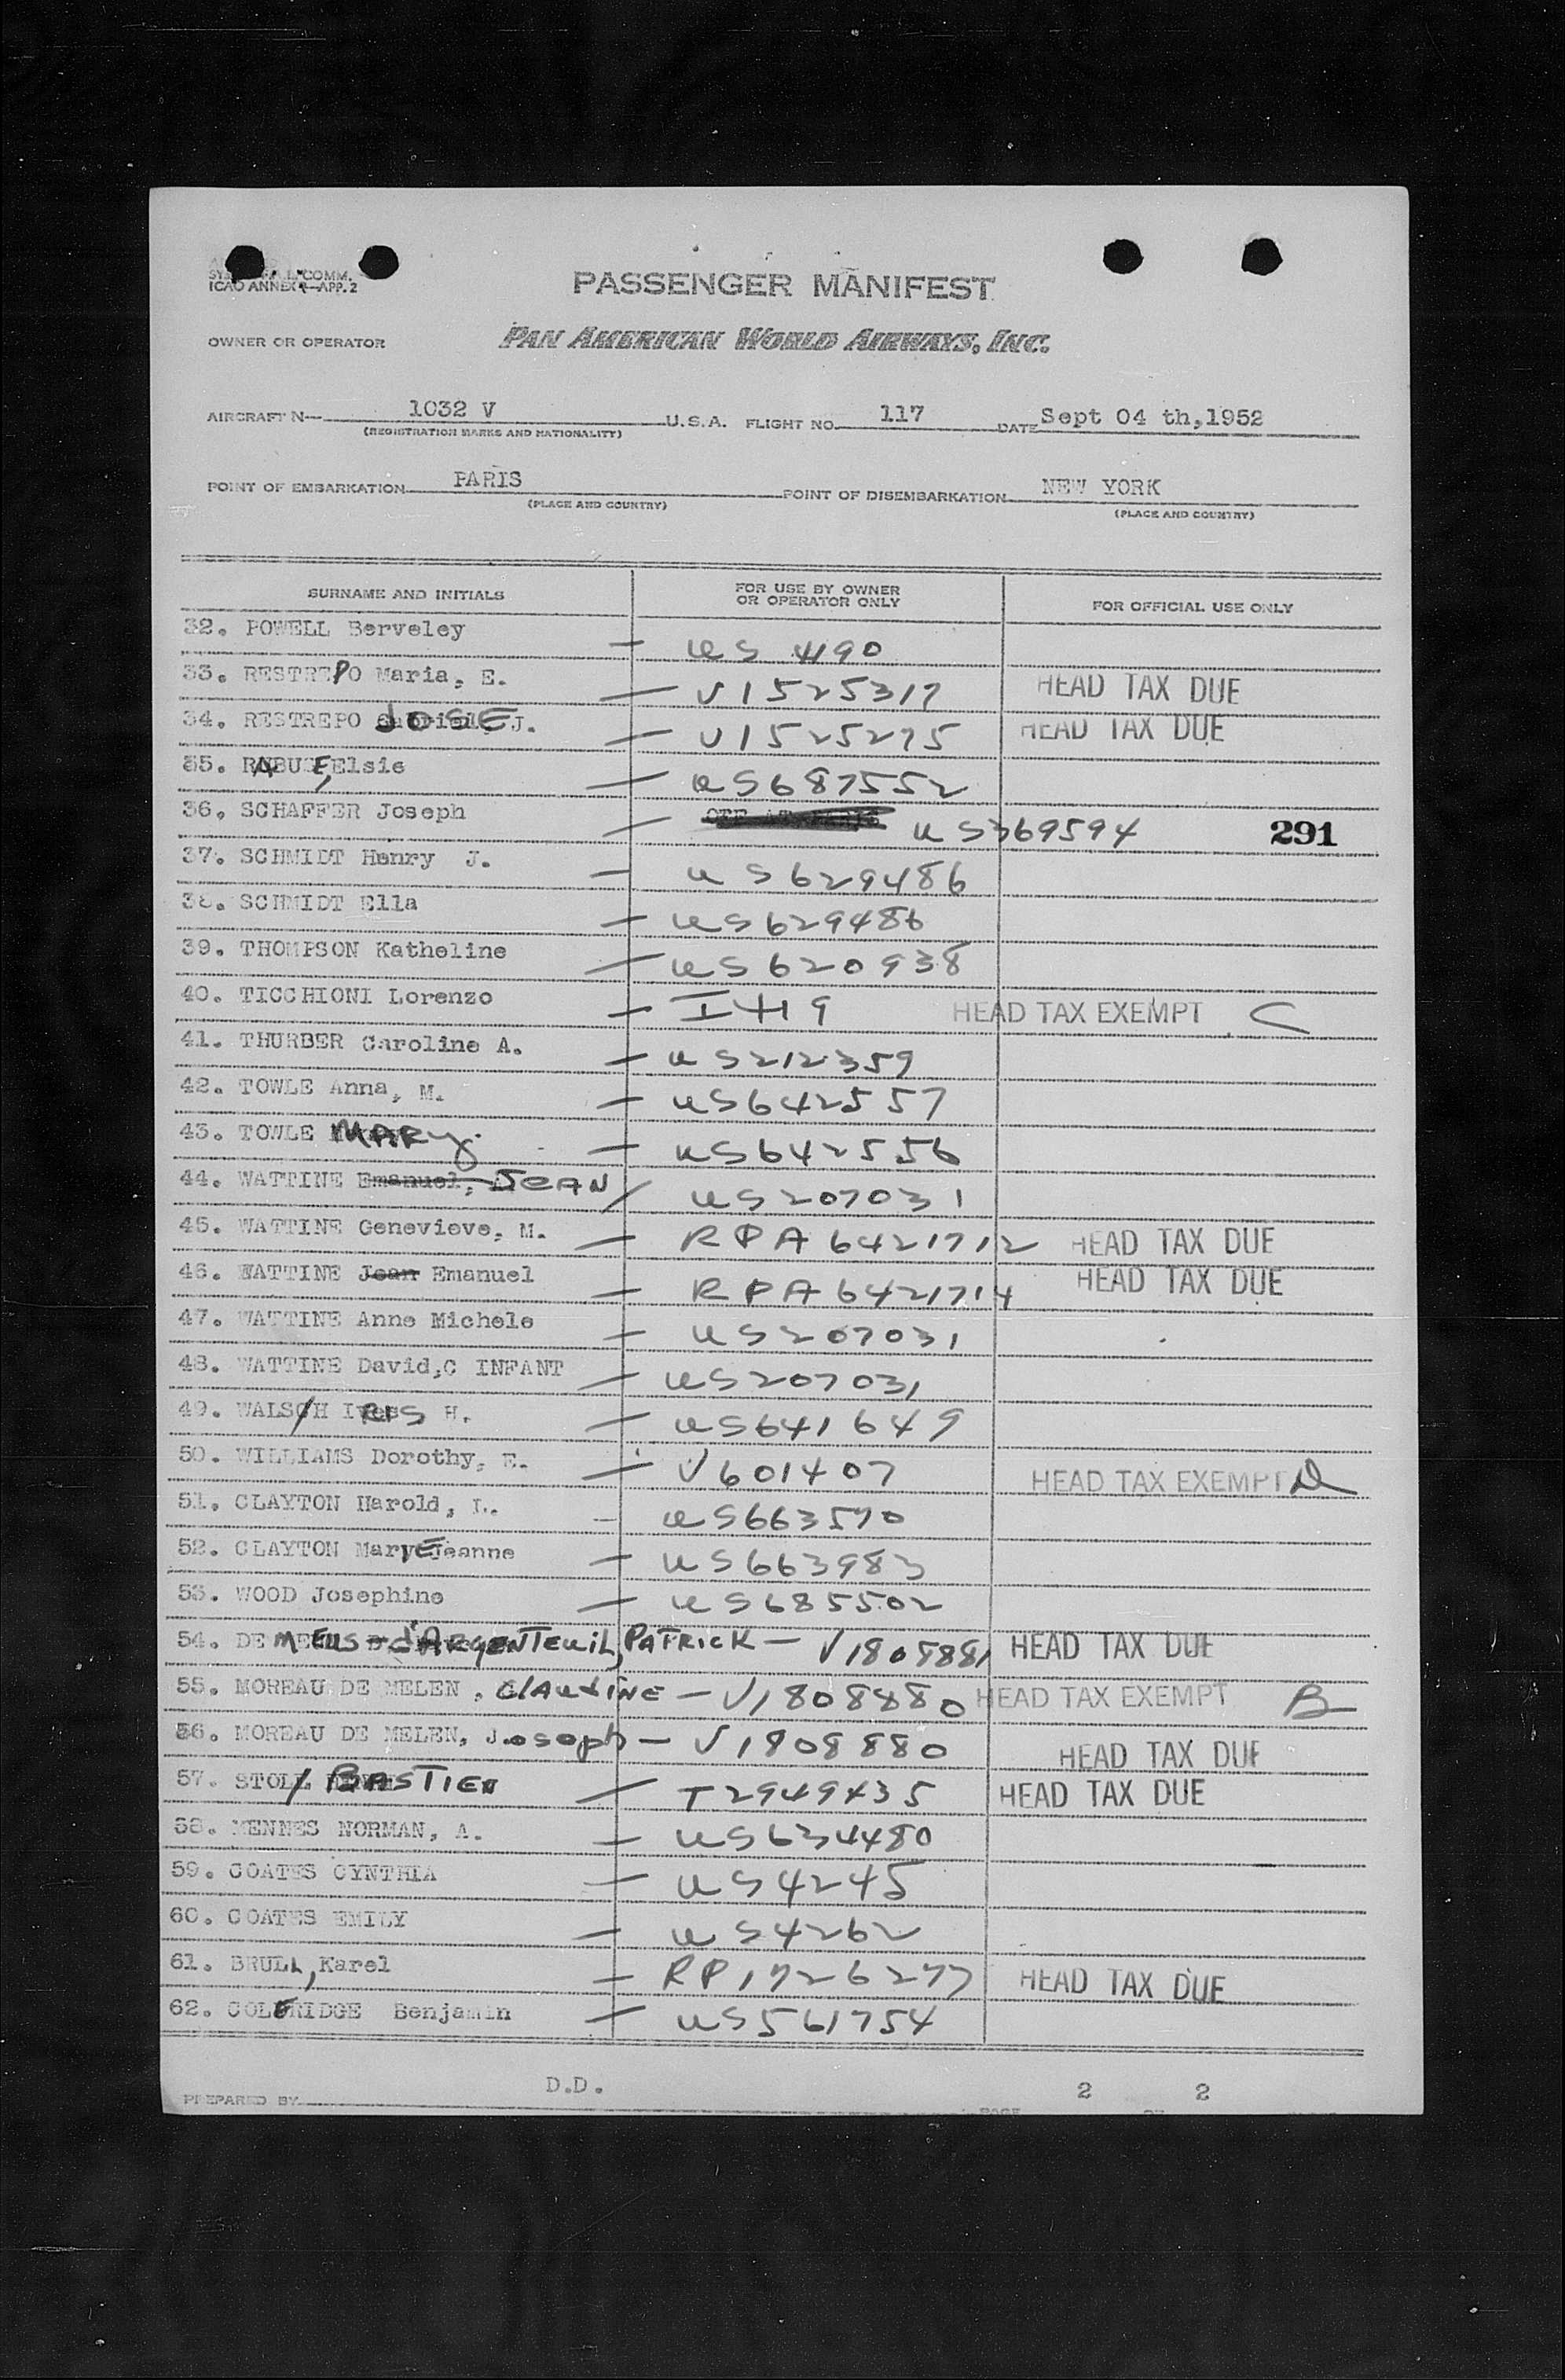 ICAO ANNEX 9—APP. 2
PASSENGER MANIFEST
OWNER OR OPERATOR PAN AMERICAN WORLD AIRWAYS, INC.
AIRCRAFT N— 1032 V U.S.A. FLIGHT NO. 117 DATE Sept 04 th,1952
(REGISTRATION MARKS AND NATIONALITY)
POINT OF EMBARKATION PARIS POINT OF DISEMBARKATION NEW YORK
(PLACE AND COUNTRY) (PLACE AND COUNTRY)
SURNAME AND INITIALS FOR USE BY OWNER OR OPERATOR ONLY FOR OFFICIAL USE ONLY
32. POWELL Berveley — US 4190
33. RESTREPO Maria, E. — V1525317 HEAD TAX DUE
34. RESTREPO JOSE J. — V1525275 HEAD TAX DUE
35. RABUSE, Elsie — US687552
36. SCHAFFER Joseph — US369594 291
37. SCHMIDT Henry J. — US629486
38. SCHMIDT Ella — US629486
39. THOMPSON Katheline — US620938
40. TICCHIONI Lorenzo — I-419 HEAD TAX EXEMPT C
41. THURBER Caroline A. — US212359
42. TOWLE Anna, M. — US642557
43. TOWLE MARY. — US642556
44. WATTINE Emanuel, JEAN / US207031
45. WATTINE Genevieve, M. — RPA6421712 HEAD TAX DUE
46. WATTINE Jean Emanuel — RPA6421714 HEAD TAX DUE
47. WATTINE Anne Michele — US207031
48. WATTINE David,C INFANT — US207031
49. WALSH IRIS H. — US641649
50. WILLIAMS Dorothy, E. — V601407 HEAD TAX EXEMPT D
51. CLAYTON Harold, L. — US663570
52. CLAYTON MaryE Jeanne — US663983
53. WOOD Josephine — US685502
54. DE MEEUS d'ARGENTEUIL, PATRICK — V1808881 HEAD TAX DUE
55. MOREAU DE MELEN, CLAUDINE — V1808880 HEAD TAX EXEMPT B
56. MOREAU DE MELEN, Joseph — V1808880 HEAD TAX DUE
57. STOLL BASTIEN — T2949435 HEAD TAX DUE
58. MENNES NORMAN, A. — US634480
59. COATES CYNTHIA — US4245
60. COATES EMILY — US4262
61. BRULL, Karel — RP1726277 HEAD TAX DUE
62. COLERIDGE Benjamin — US561754
PREPARED BY D.D. PAGE 2 OF 2